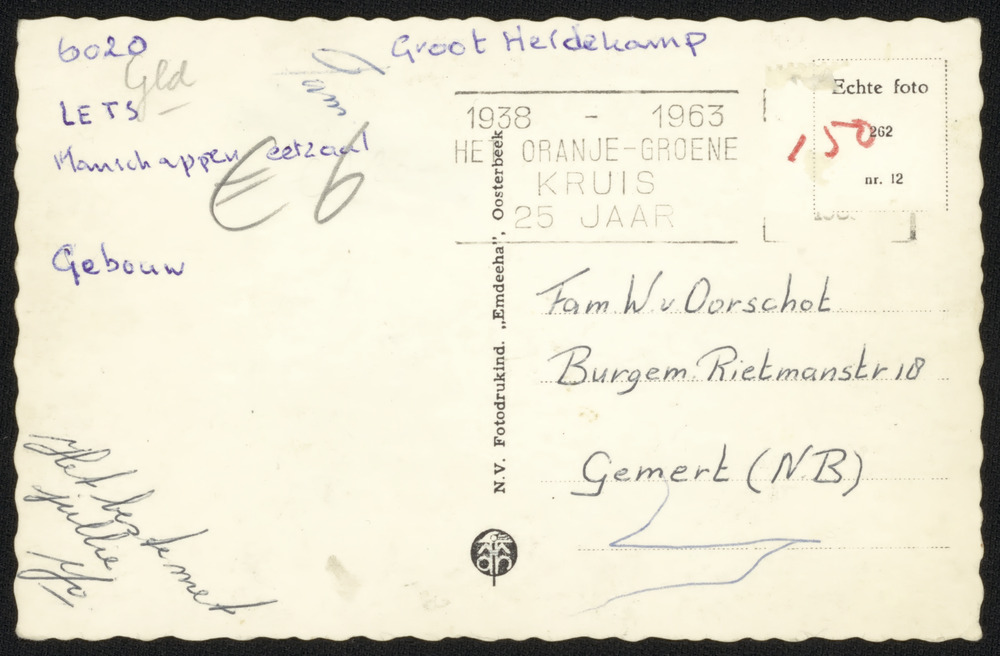 6020
Gld
LETS
Manschappen eetzaal
€ 6
Gebouw
Groot Heidekamp
1938 - 1963
HET ORANJE-GROENE
KRUIS
25 JAAR
Echte foto
150
262
nr. 12
N.V. Fotodrukind. „Emdeeha”, Oosterbeek
Fam W v Oorschot
Burgem. Rietmanstr 18
Gemert (N.B)
Het beste met
jullie